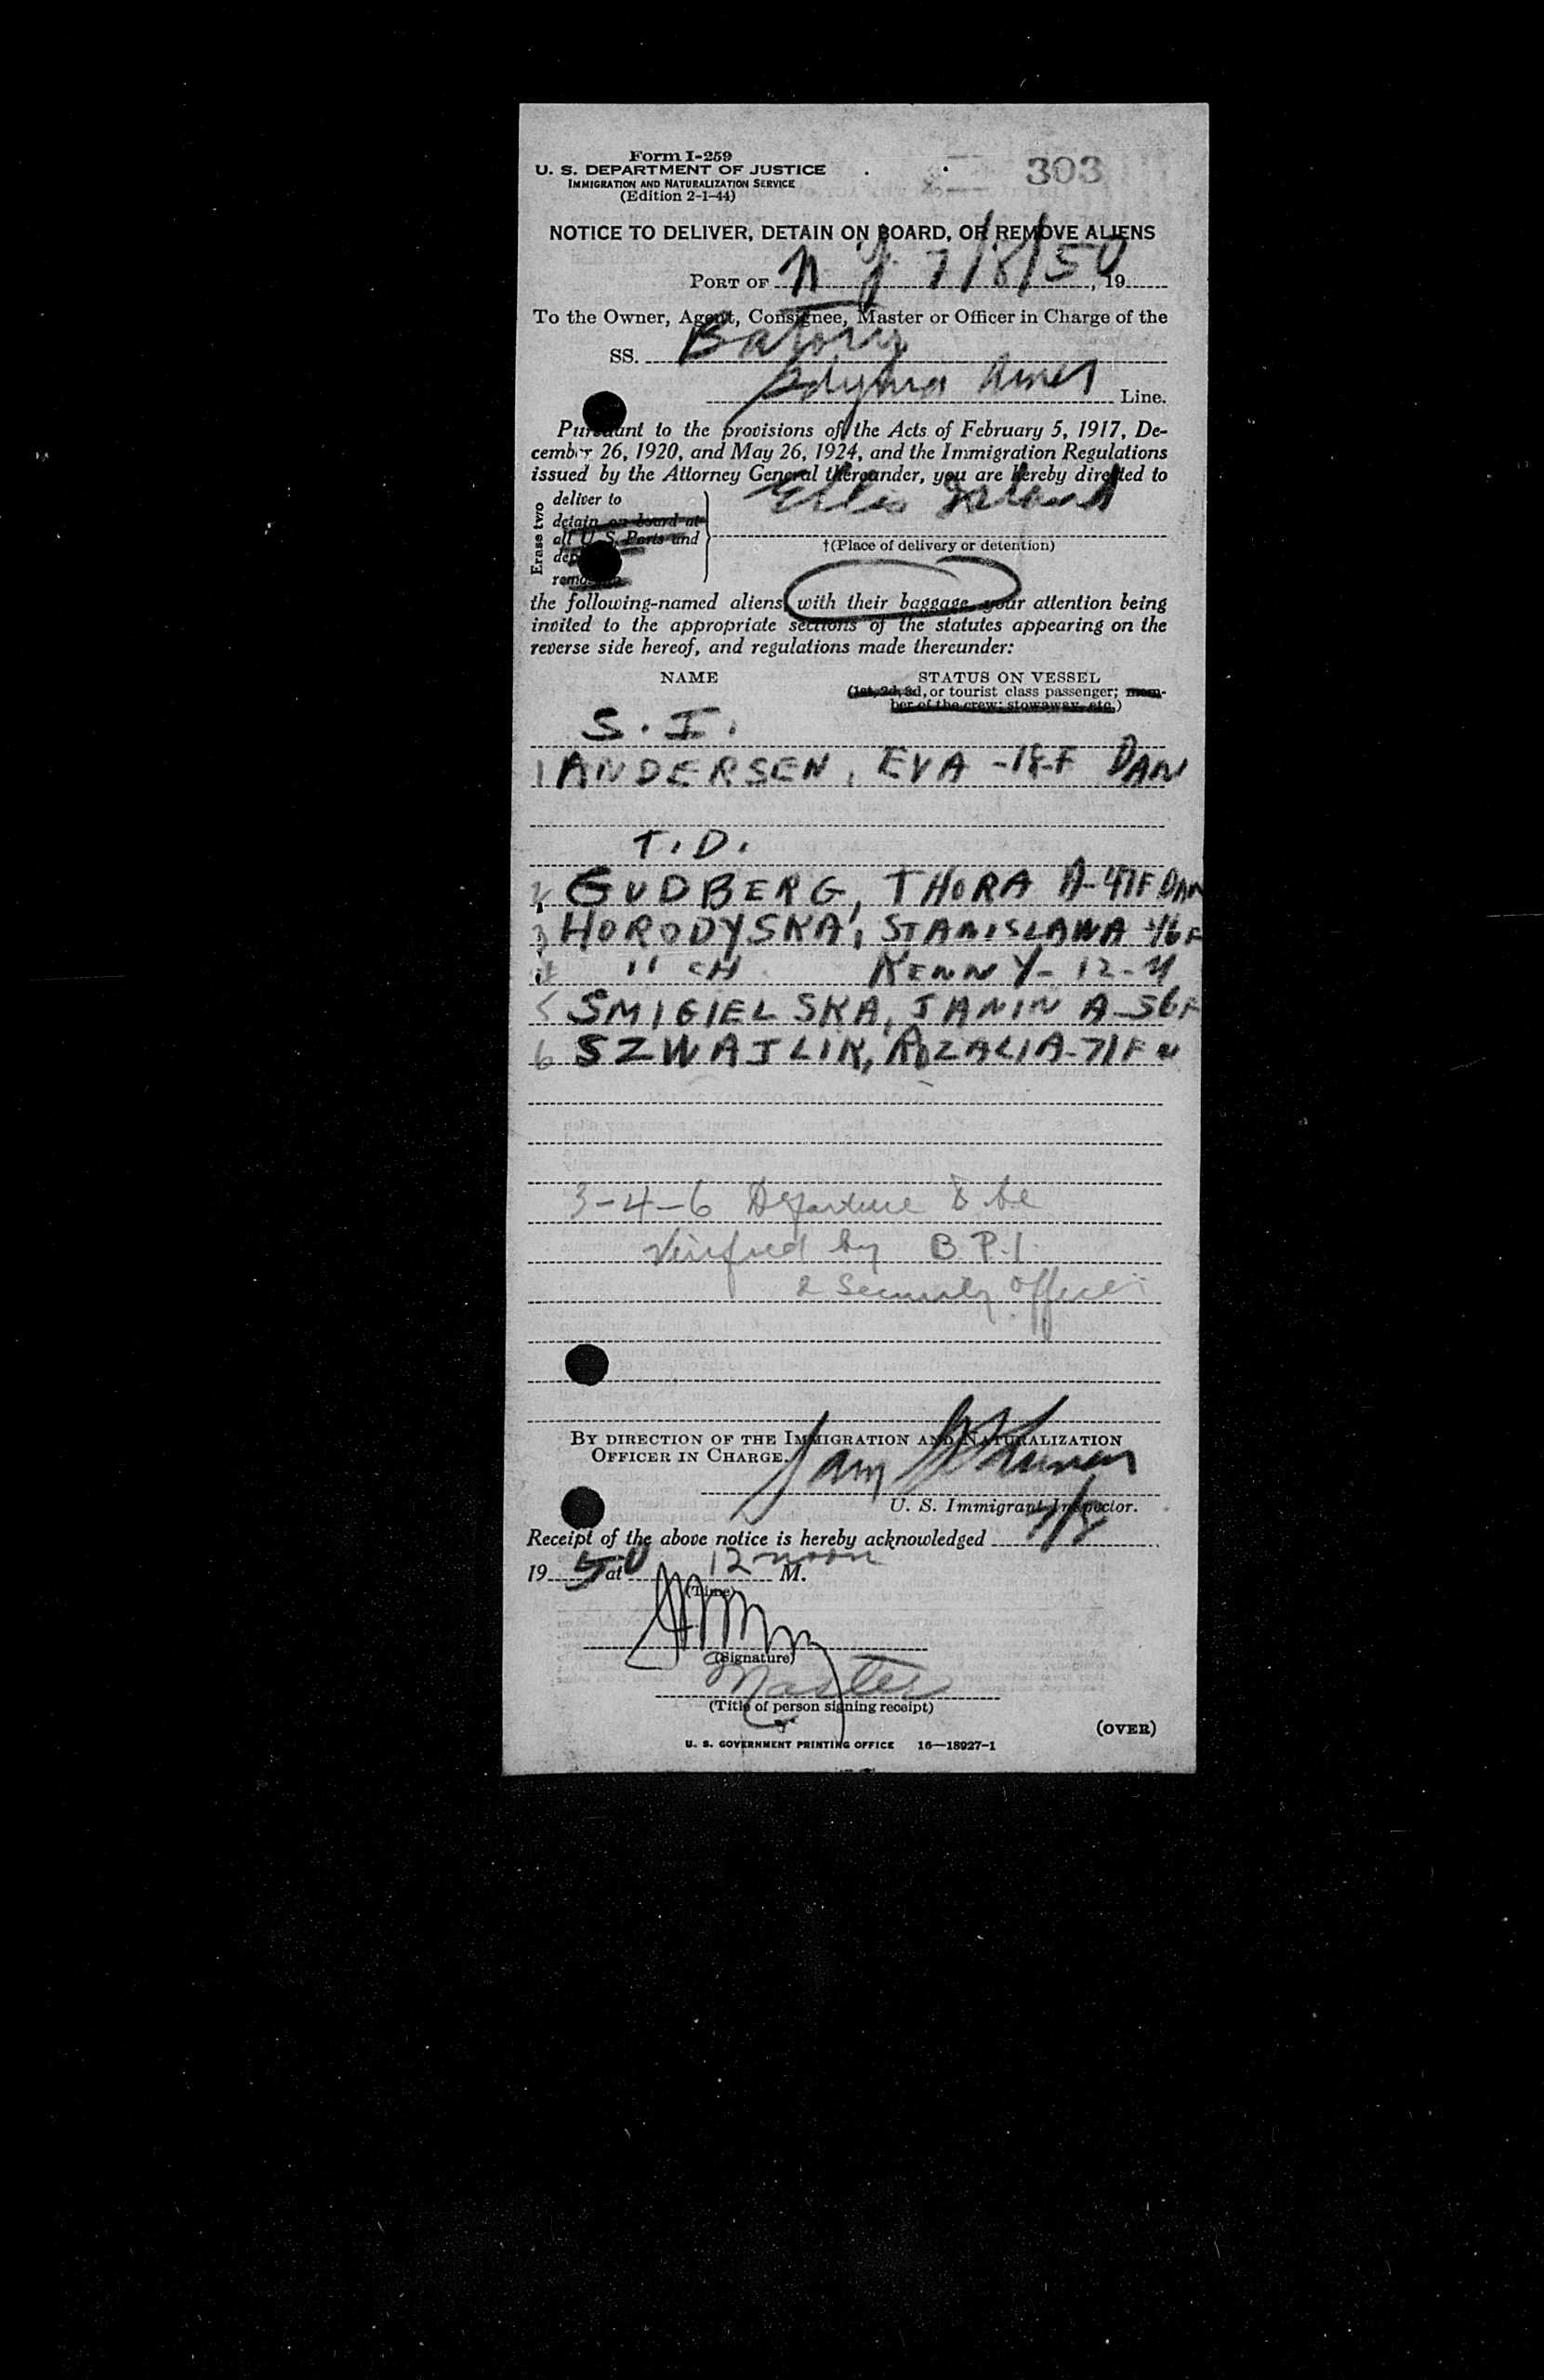 Form I-259
U. S. DEPARTMENT OF JUSTICE
IMMIGRATION AND NATURALIZATION SERVICE
(Edition 2-1-44)
303
NOTICE TO DELIVER, DETAIN ON BOARD, OR REMOVE ALIENS
PORT OF N Y 7/8/50, 19
To the Owner, Agent, Consignee, Master or Officer in Charge of the
SS. Batory
Gdynia Amer Line.
Pursuant to the provisions of the Acts of February 5, 1917, De-
cember 26, 1920, and May 26, 1924, and the Immigration Regulations
issued by the Attorney General thereunder, you are hereby directed to
Erase two
deliver to
detain on board at
all U. S. Ports and
Ellis Island
†(Place of delivery or detention)
the following-named aliens, with their baggage, your attention being
invited to the appropriate sections of the statutes appearing on the
reverse side hereof, and regulations made thereunder:
NAME STATUS ON VESSEL
(1st, 2d, 3d, or tourist class passenger; mem-
ber of the crew; stowaway, etc.)
S. I.
1 ANDERSEN, EVA -18-F DAN
T. D.
2 GUDBERG, THORA A-47F DAN
3 HORODYSKA, STANISLAWA 46 F
4 " CH KENNY- 12-M
5 SMIGIELSKA, JANINA-56F
6 SZWAJLIK, ROZALIA-71F "
3-4-6 Departure to be
Verified by B.P.I.
& Security Officer
BY DIRECTION OF THE IMMIGRATION AND NATURALIZATION
OFFICER IN CHARGE.
Sam
U. S. Immigrant Inspector.
Receipt of the above notice is hereby acknowledged 7/8
19 50 at 12 noon M.
(Time)
(Signature)
Master
(Title of person signing receipt)
(OVER)
U. S. GOVERNMENT PRINTING OFFICE 16—18927-1